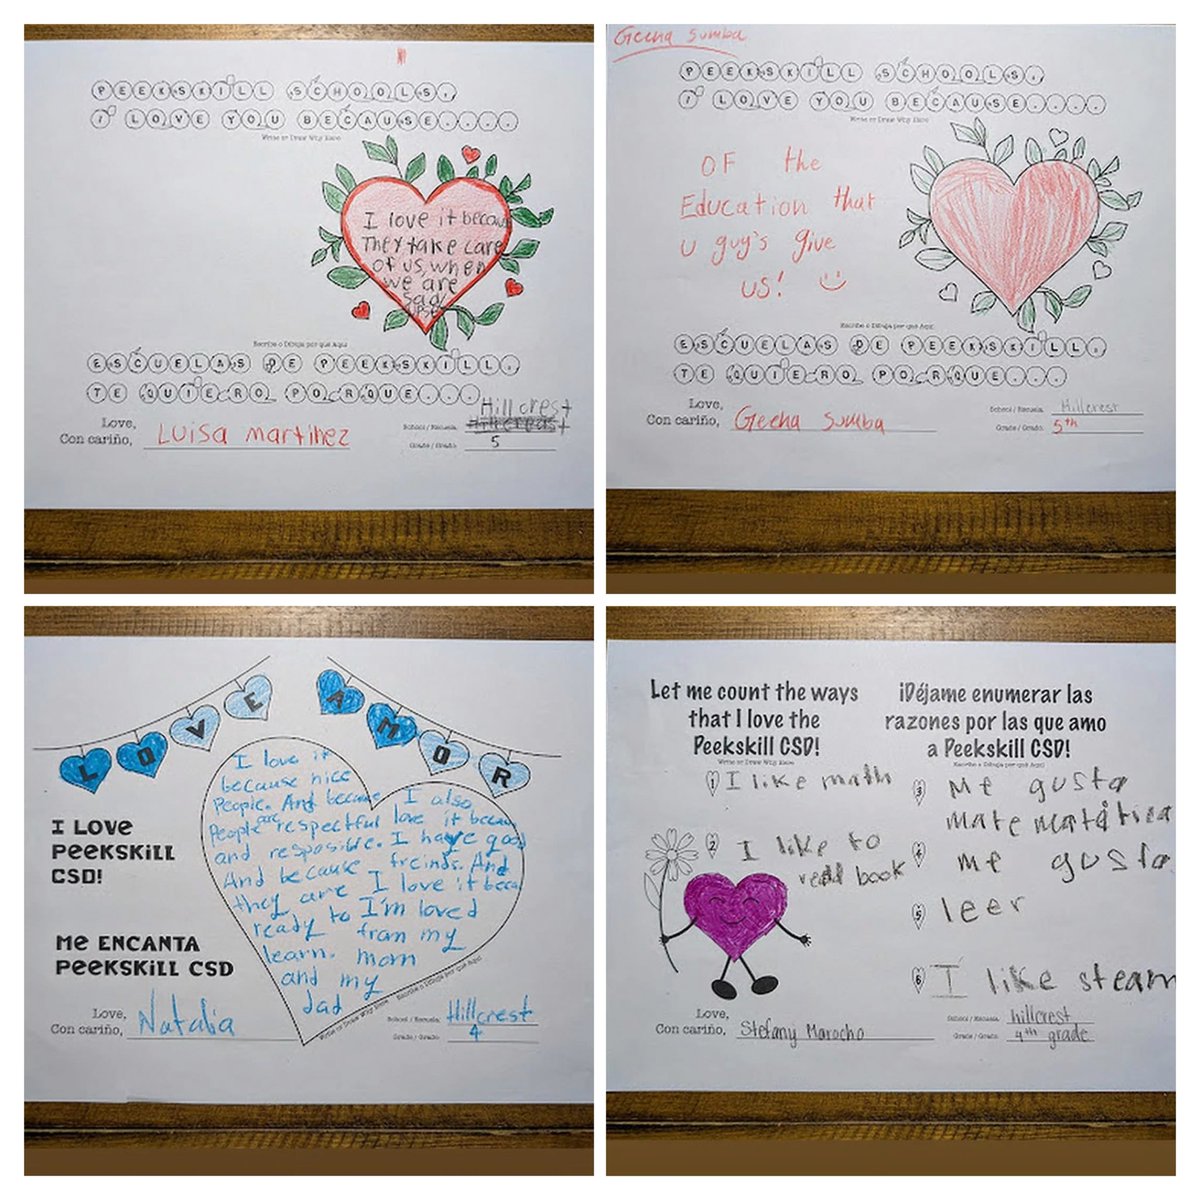 PEEKSKILL SCHOOLS,
I LOVE YOU BECAUSE....
Write or Draw Why Here
I love it becau
They take care
of us, when
we are
sad
upset
Escribe o Dibuja por qué Aquí
ESCUELAS DE PEEKSKILL,
TE QUIERO PORQUE...
Love,
Con cariño,
Luisa martinez
School / Escuela:
Hillcrest
Grade / Grado:
5
Geena Sumba
PEEKSKILL SCHOOLS,
I LOVE YOU BECAUSE....
Write or Draw Why Here
OF the
Education that
u guy's give
us!
Escribe o Dibuja por qué Aquí
ESCUELAS DE PEEKSKILL,
TE QUIERO PORQUE...
Love,
Con cariño,
Geena Sumba
School / Escuela:
Hillcrest
Grade / Grado:
5th
LOVE AMOR
I LOVE
PEEKSKILL
CSD!
ME ENCANTA
PEEKSKILL CSD
I love it
because nice
People. And because
People are respectful
and resposible.
And because
they are
ready to
learn.
I also
love it becau
I have good
freinds. And
I love it becau
I'm loved
fram my
mom
and my
dad
Write or Draw Why Here
Escribe o Dibuja por qué Aquí
Love,
Con cariño,
Natalia
School / Escuela:
Hillcrest
Grade / Grado:
4
Let me count the ways
that I love the
Peekskill CSD!
Write or Draw Why Here
¡Déjame enumerar las
razones por las que amo
a Peekskill CSD!
Escribe o Dibuja por qué Aquí
1 I like math
2 I like to
read book
3 Me gusta
matematática
4 me gusta
5 leer
6 I like steam
Love,
Con cariño,
Stefany Marocho
School / Escuela:
hillcrest
Grade / Grado:
4th grade